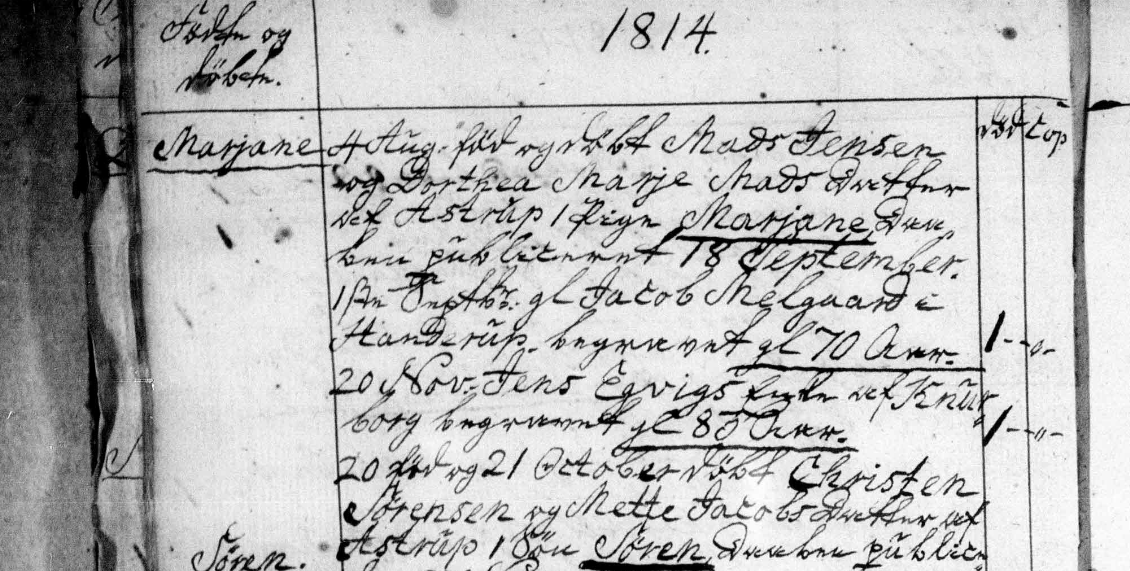 Födte og
döbte.
1814.
död Cop
Marjane
4 Aug. föd og döbt Mads Jensen
og Dorthea Marje Mads Datter
af Astrup 1 Pige Marjane, Daa„
ben publiceret 18 September.
1ste Septbr. gl Jacob Melgaard i
Handerup. begravet gl 70 Aar. 1 - „ -
20 Nov. Jens Egvigs Enke af Knur„
borg begravet gl 85 Aar. 1 - „ -
20 föd og 21 October döbt Christen
Sörensen og Mette Jacobs Datter af
Sören.
Astrup 1 Sön Sören, Daaben publice„